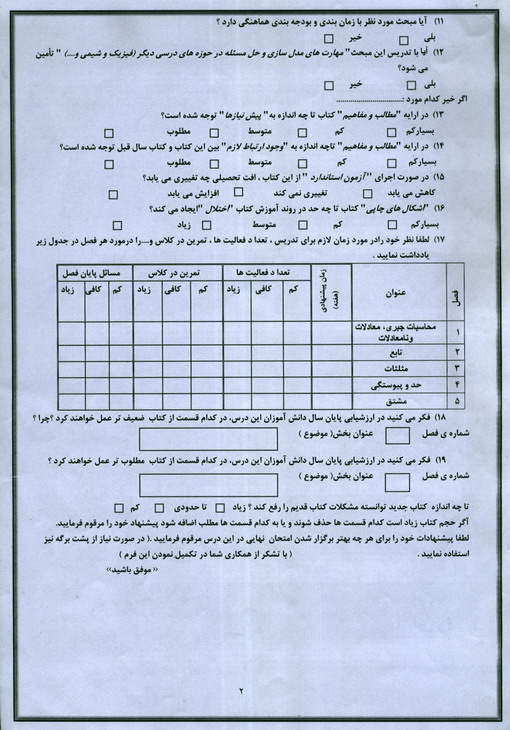 ۱۱) آیا مبحث مورد نظر با زمان بندی و بودجه بندی هماهنگی دارد ؟
بلی خیر
۱۲) آیا با تدریس این مبحث" مهارت های مدل سازی و حل مسئله در حوزه های درسی دیگر (فیزیک و شیمی و...) " تأمین
می شود؟
بلی خیر
اگر خیر کدام مورد :..............................
۱۳) در ارایه "مطالب و مفاهیم" کتاب تا چه اندازه به" پیش نیازها" توجه شده است؟
بسیارکم کم متوسط مطلوب
۱۴) در ارایه "مطالب و مفاهیم" تاچه اندازه به "وجود ارتباط لازم" بین این کتاب و کتاب سال قبل توجه شده است؟
بسیارکم کم متوسط مطلوب
۱۵) در صورت اجرای "آزمون استاندارد" از این کتاب ، افت تحصیلی چه تغییری می یابد؟
کاهش می یابد تغییری نمی کند افزایش می یابد
۱۶) "اشکال های چاپی" کتاب تا چه حد در روند آموزش کتاب "اختلال "ایجاد می کند؟
بسیارکم کم متوسط زیاد
۱۷) لطفا نظر خود رادر مورد زمان لازم برای تدریس ، تعدا د فعالیت ها ، تمرین در کلاس و...را درمورد هر فصل در جدول زیر
یادداشت نمایید .
فصل عنوان زمان پیشنهادی (هفته) تعدا د فعالیت ها تمرین در کلاس مسائل پایان فصل
کم کافی زیاد کم کافی زیاد کم کافی زیاد
۱ محاسبات جبری، معادلات
ونامعادلات
۲ تابع
۳ مثلثات
۴ حد و پیوستگی
۵ مشتق
۱۸) فکر می کنید در ارزشیابی پایان سال دانش آموزان این درس، در کدام قسمت از کتاب ضعیف تر عمل خواهند کرد ؟چرا ؟
شماره ی فصل عنوان بخش( موضوع )
۱۹) فکر می کنید در ارزشیابی پایان سال دانش آموزان این درس، در کدام قسمت از کتاب مطلوب تر عمل خواهند کرد ؟
شماره ی فصل عنوان بخش( موضوع )
تا چه اندازه کتاب جدید توانسته مشکلات کتاب قدیم را رفع کند ؟ زیاد تا حدودی کم
اگر حجم کتاب زیاد است کدام قسمت ها حذف شوند و یا به کدام قسمت ها مطلب اضافه شود پیشنهاد خود را مرقوم فرمایید.
لطفا پیشنهادات خود را برای هر چه بهتر برگزار شدن امتحان نهایی در این درس مرقوم فرمایید .( در صورت نیاز از پشت برگه نیز
استفاده نمایید . ( با تشکر از همکاری شما در تکمیل نمودن این فرم )
‹‹ موفق باشید››
۲